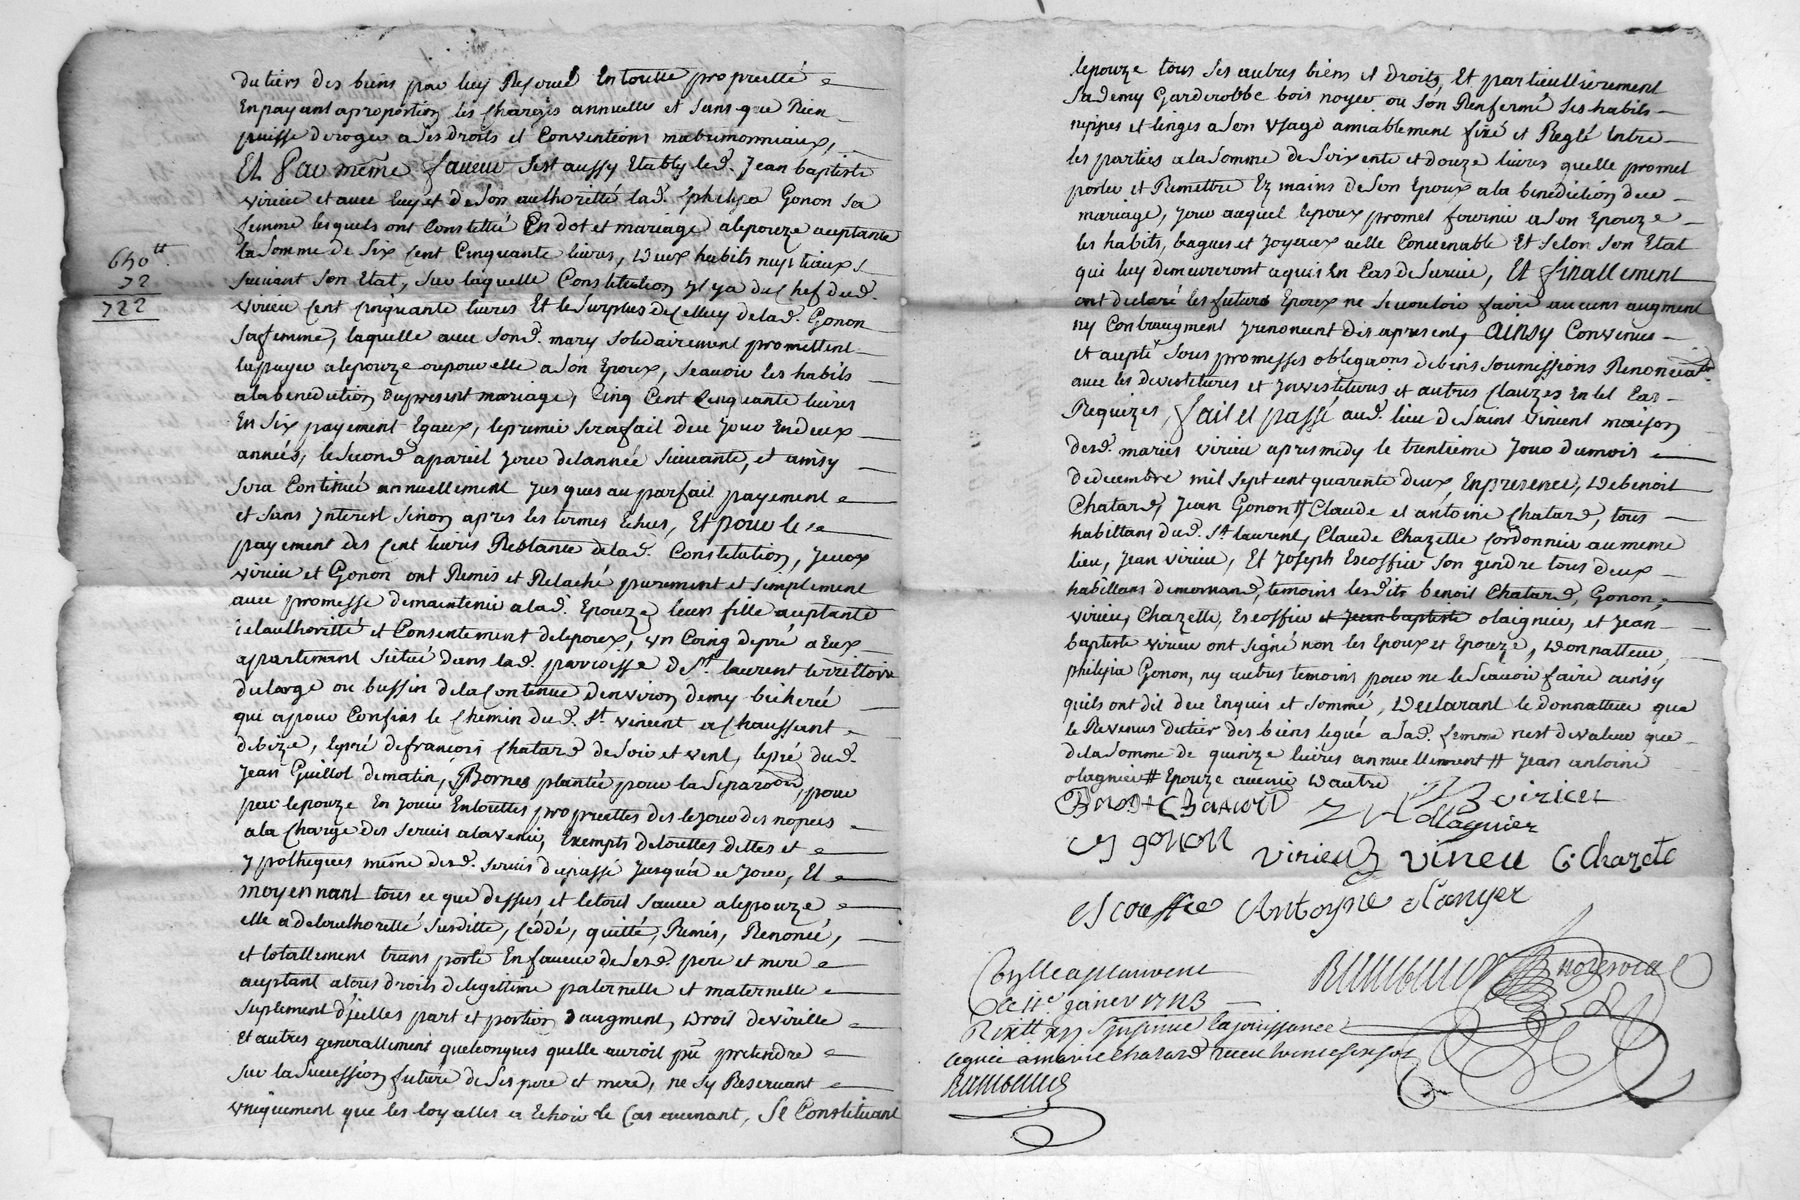 du tiers des biens par luy Reservé En toutte proprietté
En payant aproportion les Charges annuelles et sans que Rien
puisse deroger a ses droits et Conventions matrimonniaux,
Et Par même faveur s'est aussy Etably led. Jean baptiste
virieu et avec luy et de son authoritté lad. philipa Gonon sa
femme lesquels ont Constitué En dot et mariage a lepouze aceptante
650tt.
72
722
la somme de Six Cent Cinquante livres, deux habits nuptiaux
suivant son Etat, sur laquelle Constitution il y a du Chef dud.
virieu Cent Cinquante livres Et le Surplus de Celluy de lad. Gonon
sa femme, laquelle avec sond. mary solidairement promettent
la payer a lepouze ou pour elle a son Epoux, scavoir les habits
a la benediction du present mariage, Cinq Cent Cinquante livres
En Six payement Egaux, le premier sera fait de ce Jour En deux
années, le second a pareil Jour de lannée suivante, et ainsy
sera Continué annuellement Jusques au parfait payement
et sans Interest sinon apres les termes Echus, Et pour le
payement des Cent livres Restante de lad. Constitution, Iceux
virieu et Gonon ont Remis et Relaché purement et simplement
avec promesse de maintenir a lad. Epouze leur fille aceptante
de lauthoritté et Consentement de lepoux, un Coing de pré a Eux
apartenant scitué dans lad. parroisse de St. laurent territtoire
du large ou bussin de la Contenue denviron demy bicherée
qui a pour Confins le Chemin dud. St. vincent a Chaussant
de bize, le pré de francois Chatard de soir et vent, le pré dud.
Jean Guillot de matin, Bornes plantée pour la separaon, pour
par lepouze En Jouir En touttes proprietés des le Jour des nopces
a la Charge des servis a lavenir, Exempts de touttes dettes et
ypotheques même desd. servis du passé Jusqua ce Jour, Et
moyennant tous ce que dessus et le tout sauve a lepouze
elle a de lauthoritté susditte, Céddé, quitté, Remis, Renoncé,
et totallement transporté En faveur de sesd. pere et mere
aceptant a tous droits de legittime paternelle et maternelle
suplement dicelles part et portion daugment, droit de virille
Et autres generallement quelconques quelle auroit pû pretendre
sur la succession future de ses pere et mere, ne sy Reservant
uniquement que les loyalles a Echoir le Cas avenant, Se Constituant
lepouze tous ses autres biens et droits, Et particullierement
sa demy Garderobbe bois noyer ou son Renfermé ses habits
nippes et linges a son Usage amiablement fixé et Reglé Entre
les parties a la somme de soixente et douze livres quelle promet
porter et Remettre Ez mains de son Epoux a la benediction de ce
mariage, Jour auquel lepoux promet fournir a son Epouze
les habits, bagues et Joyaux a elle Convenable Et selon son Etat
qui luy demeureront aquis En Cas de survie, Et finallement
ont declaré les futurs Epoux ne se vouloir faire aucuns augment
ny Contraugment y renoncent des apresent, ainsy Convenus
et acepté sous promesses obligaons de biens soumissions Renonciaons
avec les devestitures et Investitures et autres Clauzes En tel Cas
Requizes, fait et passé aud. lieu de saint vincent maison
desd. mariés virieu apres midy le trentieme Jour du mois
de decembre mil sept cent quarente deux, En presence, de benoit
Chatard, Jean Gonon # Claude et antoine Chatard, tous
habittans dud. St. laurent, Claude Chazelle Cordonnier au meme
lieu, Jean virieu, Et Joseph Escoffier son gendre tous deux
habittans de mornand, temoins lesdits benoit Chatard, Gonon,
virieu, Chazelle, Escoffier et Jean baptiste olaignier, et Jean
baptiste virieu ont signé non les Epoux et Epouze, donnatteur,
philipa Gonon, ny autres temoins pour ne le scavoir faire ainsy
quils ont dit de ce Enquis et sommé, declarant le donnatteur que
le Revenus du tier des biens legué a sad. femme n'est de valeur que
de la somme de quinze livres annuellement # Jean antoine
olagnier # Epouze avenir dautre
Benoit Chatard J B virieu
olagnier
gonon virieux vireu C. chazele
escoffie Antoyne olanyer
no re royal
Collé
ce 11e. janvier 1743
la jouissance
leguée a marie chatard